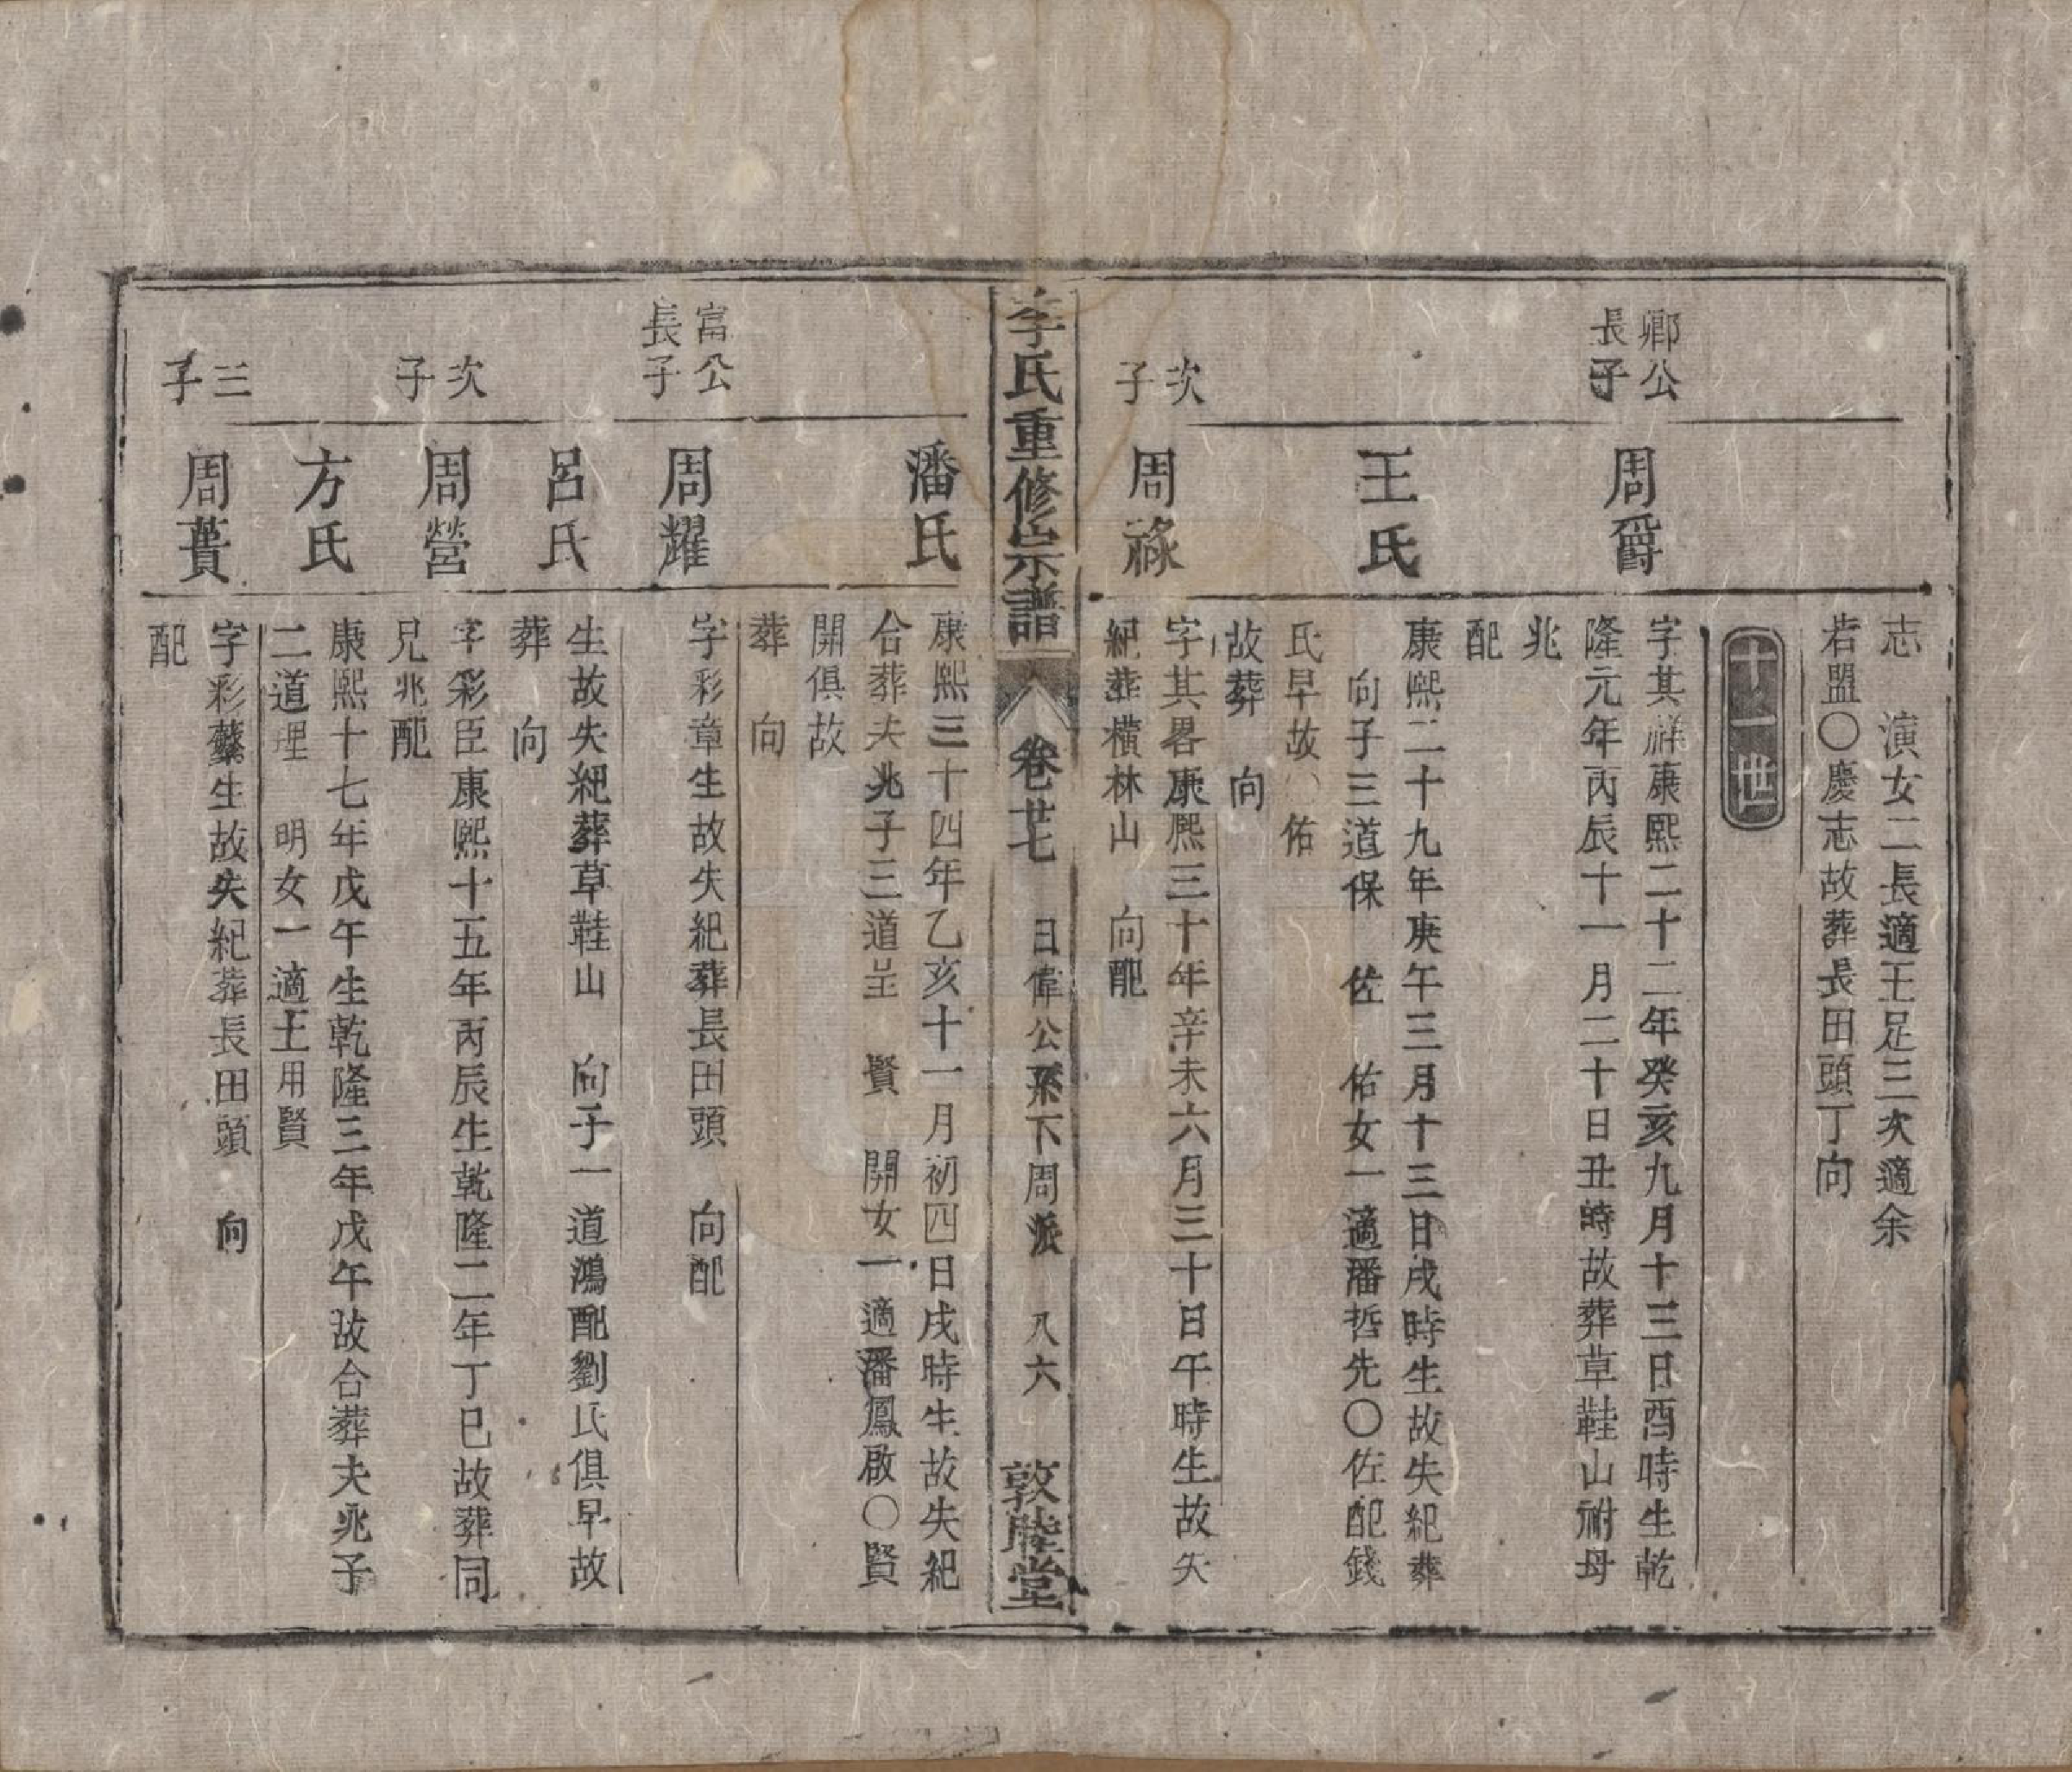 志　演女二長適王足三次適余
若盟〇慶志故葬長田頭丁向
十一世
卿公
長子
周爵
字其祥康熙二十二年癸亥九月十三日酉時生乾
隆元年丙辰十一月二十日丑時故葬草鞋山祔母
兆
配
王氏
康熙二十九年庚午三月十三日戌時生故失紀葬
向子三道保　佐　佑女一適潘哲先〇佐配錢
氏早故〇佑
故葬　向
次
子
周祿
字其畧康熙三十年辛未六月三十日午時生故失
紀葬橫林山　向配
李氏重修宗譜
卷廿七　日偉公系下周派　八六
敦睦堂
潘氏
康熙三十四年乙亥十一月初四日戌時生故失紀
合葬夫兆子三道呈　賢　開女一適潘鳳啟〇賢
開俱故
葬　向
富公
長子
周耀
字彩章生故失紀葬長田頭　向配
呂氏
生故失紀葬草鞋山　向子一道鴻配劉氏俱早故
葬　向
次
子
周營
字彩臣康熙十五年丙辰生乾隆二年丁巳故葬同
兄兆配
方氏
康熙十七年戊午生乾隆三年戊午故合葬夫兆子
二道理　明女一適王用賢
三
子
周蕢
字彩蘩生故失紀葬長田頭　向
配